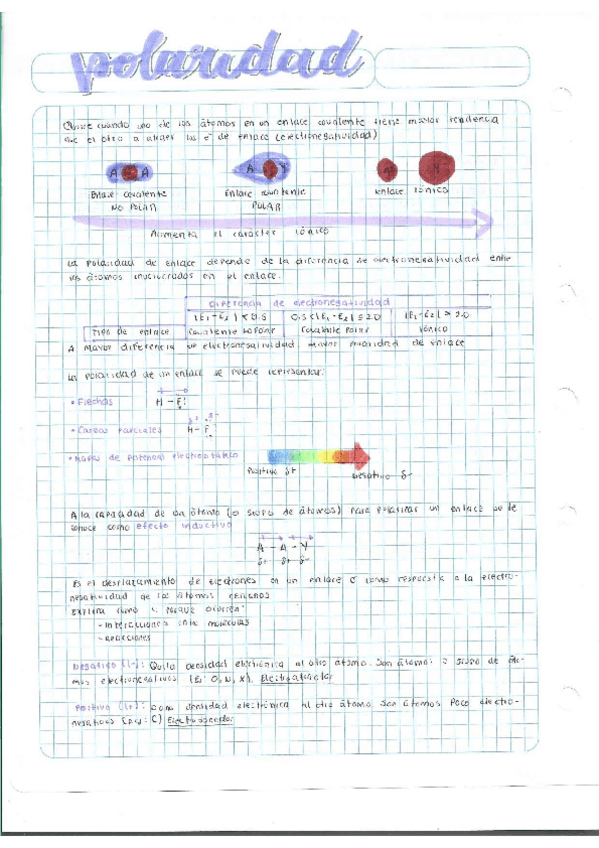 polaridad
Ocurre cuando uno de los átomos en un enlace covalente tiene mayor tendencia
que el otro a atraer los e⁻ de enlace (electronegatividad)
A A
A Y
Enlace covalente
NO POLAR
Enlace covalente
POLAR
enlace iónico
Aumenta el carácter iónico
La polaridad de enlace depende de la diferencia de electronegatividad entre
los átomos involucrados en el enlace.
Diferencia de electronegatividad
|E₁-E₂| < 0.5
0.5 < |E₁-E₂| ≤ 2.0
|E₁-E₂| > 2.0
Tipo de enlace
Covalente no Polar
Covalente Polar
iónico
A mayor diferencia de electronegatividad, mayor polaridad de enlace
La polaridad de un enlace se puede representar:
• Flechas H - F
• Cargas parciales H - F
δ+ δ-
• Mapas de potencial electrostático
Positivo δ+
Negativo δ-
A la capacidad de un átomo (o grupo de átomos) para polarizar un enlace se le
conoce como efecto inductivo
A - A - Y
δ+ δ+ δ-
Es el desplazamiento de electrones en un enlace σ como respuesta a la electro-
negatividad de los átomos
Explica como y porque ocurren:
- Interacciones entre moléculas
- reacciones
Negativo (I-): Quita densidad electrónica al otro átomo. Son átomos o grupo de áto-
mos electronegativos (Ej: O, N, X). Electroatractor
Positivo (I+): dona densidad electrónica al otro átomo. Son átomos poco electro-
negativos (p.ej: C) Electrodonador